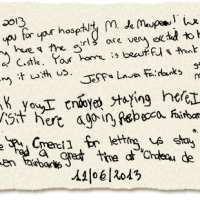 2013
you for your hospitality M. de Maupeou! We
here & the girls are very excited to
Castle. Your home is beautiful & thank
ng it with us. Jeff & Laura Fairbanks
k you, I enjoyed staying here. I
visit here again, Rebecca Fairban
you (merci) for letting us stay
had a great time at "Chateau de
en Fairbanks
11/06/2013